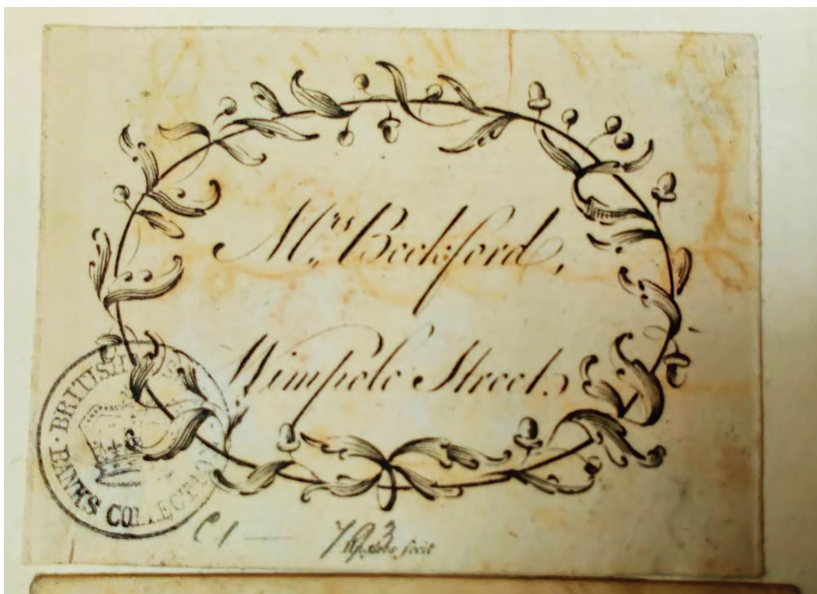 Mrs Beckford,
Wimpole Street,
BRITISH
BANKS COLLECTION
C1—
793
fecit